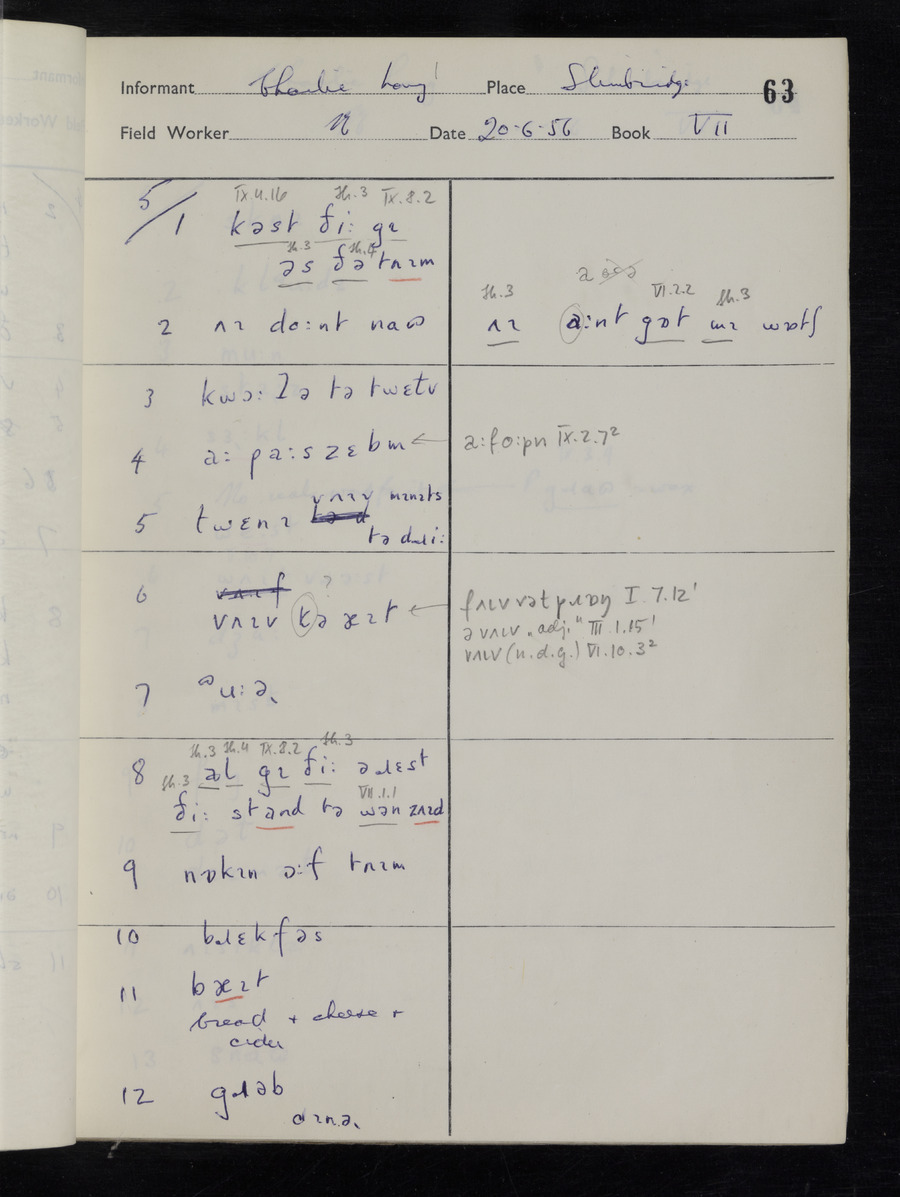 Informant Charlie Long Place Slimbridge 63
Field Worker Date 20-6-56 Book VII
5/
IX.4.16 Sh.3 IX.8.2
1 kəst ði: gɪ
Sh.3 Sh.4
əs ðə tʌɪm
2 ʌɪ do:nt naʊ
Sh.3 VI.2.2 Sh.3
ʌɪ a:nt gɒt mɪ wɒtʃ
3 kwɔ:ɹə tə twɛtv
4 a: pa:s zɛbm ← a:fo:pn IX.2.7²
5 twɛnɪ vʌɪv mɪnɪts
tə dɹi:
6 vʌɪv k ə æɪt ← fʌɪv vət pɹɒŋ I.7.12¹
ə vʌɪv "adj." III.1.15¹
vʌɪv (n.d.g.) VI.10.3²
7 ʊu:ə˞
Sh.3 Sh.4 IX.8.2 Sh.3
8 əl gɪ ði: əɹɛst
Sh.3 VII.1.1
ði: stand tə wən zʌɪd
9 nɒkɪn ɔ:f tʌɪm
10 bɹɛkfəs
11 bæɪt
bread + cheese +
cider
12 gɹəb
dɪnə˞